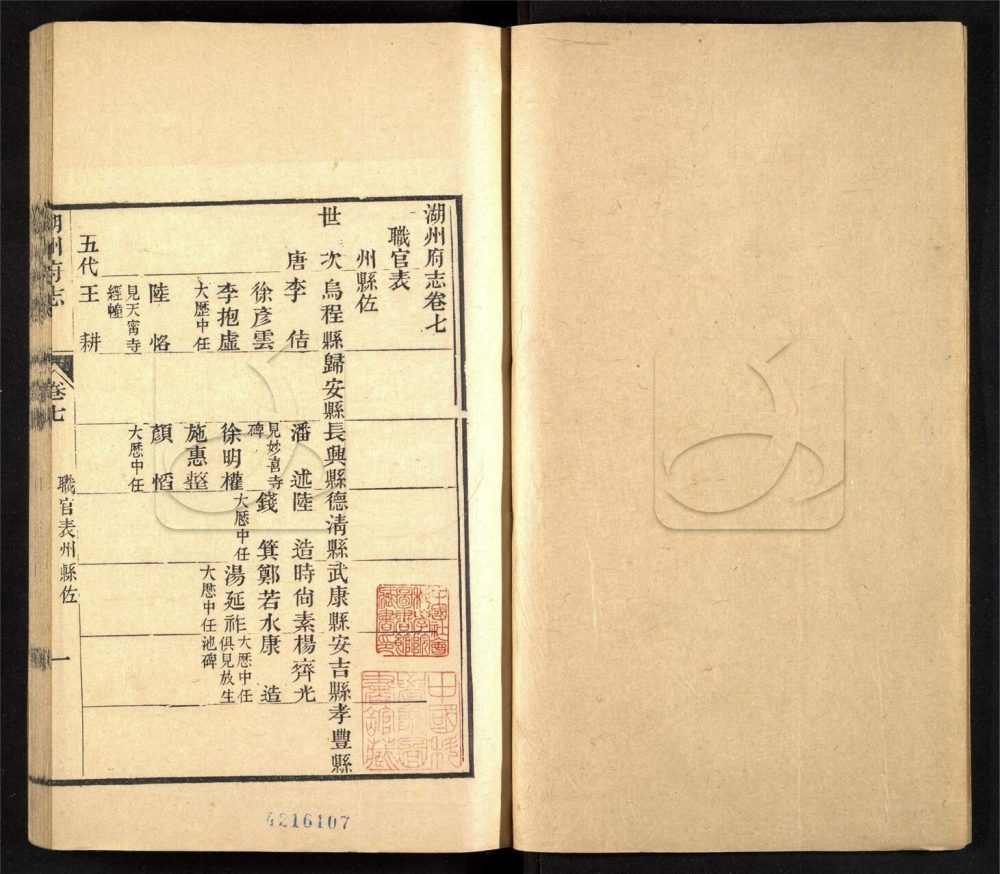 湖州府志卷七
職官表
州縣佐
世次 烏程縣 歸安縣 長興縣 德清縣 武康縣 安吉縣 孝豐縣
唐 李佶 潘述 陸造 時尙素 楊齊光
徐彦雲 見妙喜寺碑 錢箕 鄭若水 康造
李抱虛 徐明權 大厯中任 湯延 大厯中任俱見放生池碑
大歷中任 施惠整 大厯中任
陸恪 顏慆
見天甯寺經幢 大厯中任
五代 王耕
湖州府志 卷七 職官表州縣佐 一
4216107